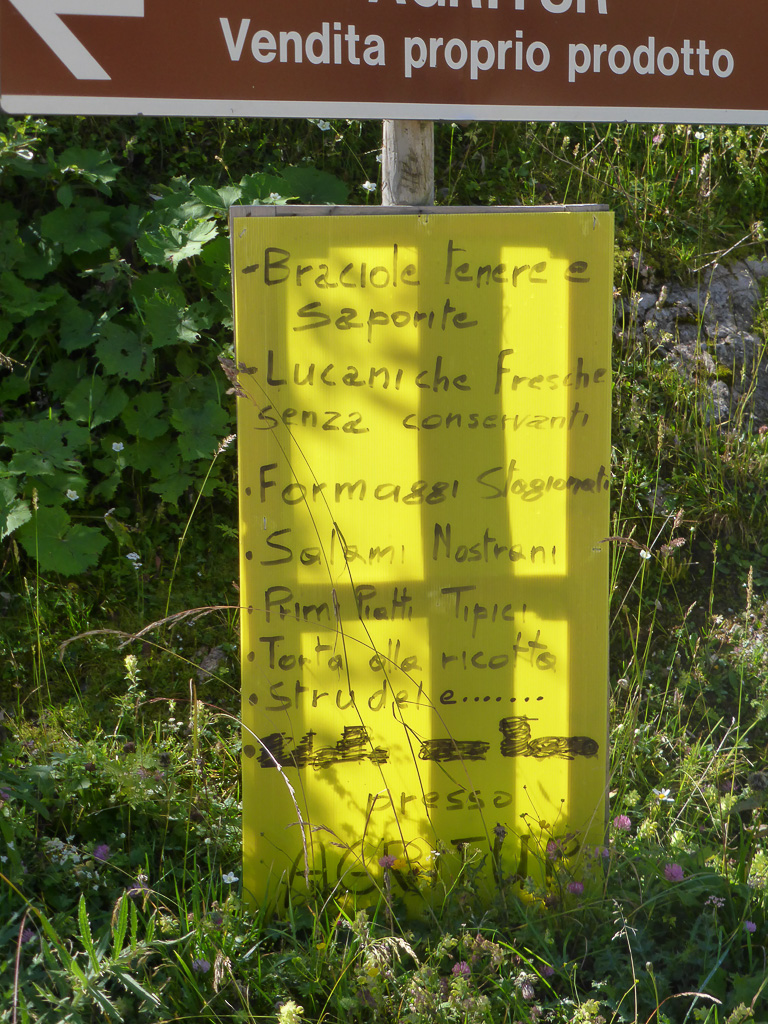 AGRITUR
Vendita proprio prodotto
- Braciole tenere e
saporite
- Lucaniche fresche
senza conservanti
• Formaggi Stagionati
• Salami Nostrani
• Primi Piatti Tipici
• Torta alla ricotta
• Strudel e........
presso
AGRITUR